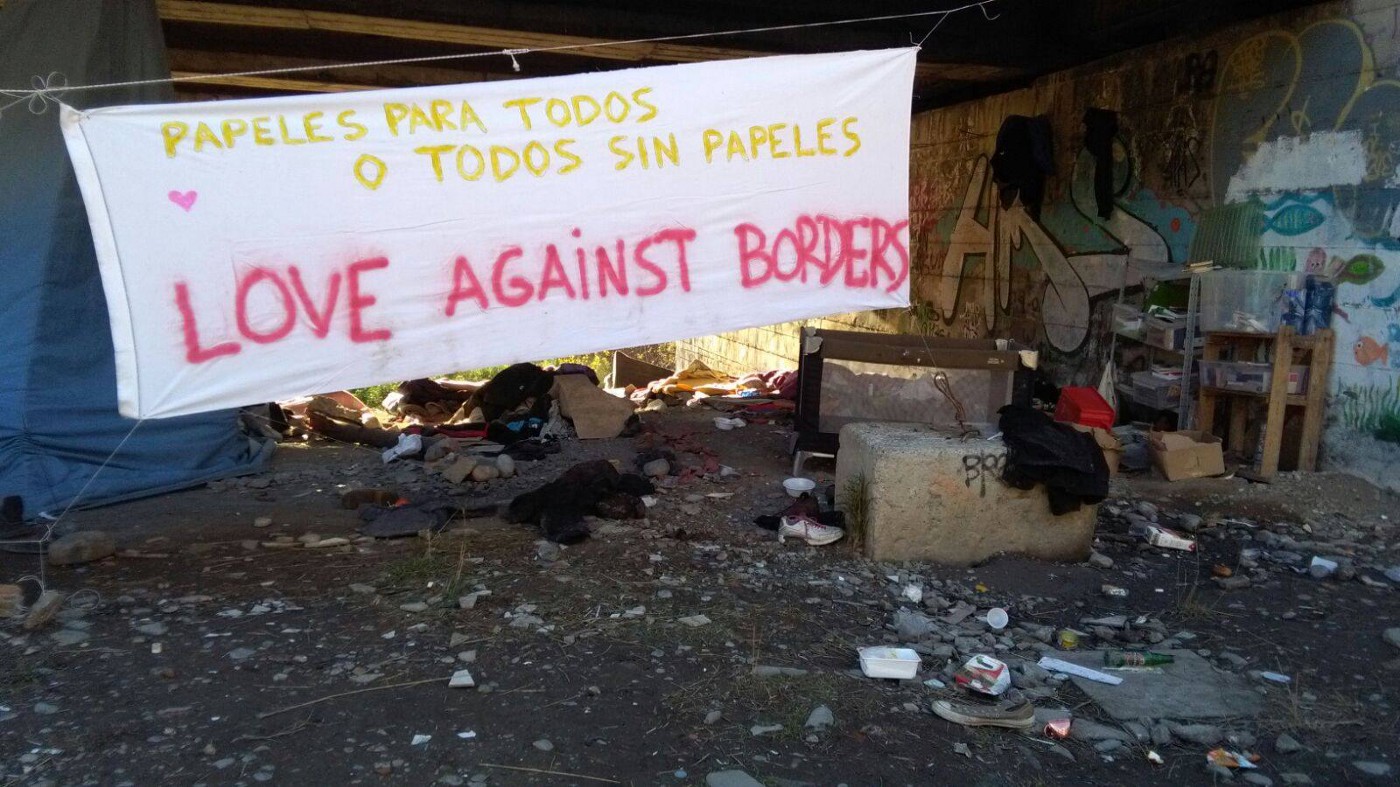 PAPELES PARA TODOS
O TODOS SIN PAPELES
LOVE AGAiNST BORDERS